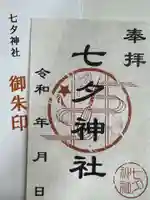 奉拝
七夕神社
令和 年 月 日
七夕神社
御朱印